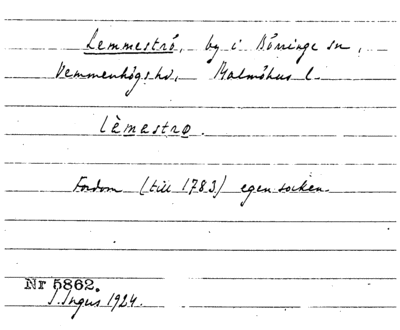 Lemmeströ, by i Börringe sn,
Vemmenhögs hd, Malmöhus l.
lèmestrø.
Fordom (till 1783) egen socken.
Nr 5862.
S. Ingers 1924.